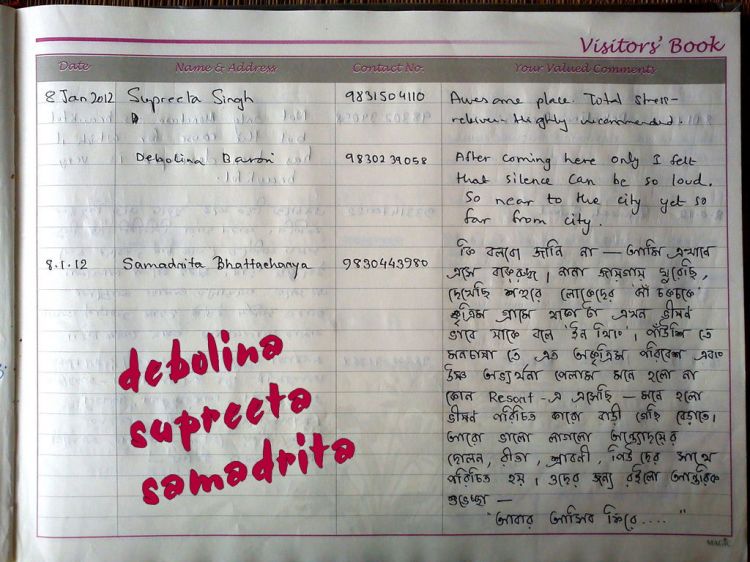 Visitors' Book
Date Name & Address Contact No. Your Valued Comments
8 Jan 2012 Supreeta Singh 9831504110 Awesome place. Total stress-
reliever. Highly recommended.
Debolina Baron 9830239058 After coming here only I felt
that silence can be so loud.
So near to the city yet so
far from city.
8.1.12 Samadrita Bhattacharya 9830443980 কি বলবো জানি না — আমি এখানে
এসে নানা জায়গায় ঘুরেছি,
দেখেছি শহুরে লোকেদের
কৃত্রিম গ্রামে থাকা টা এখন ভীষন
ভাবে যাকে বলে 'ইন থিং'।
এত অকৃত্রিম পরিবেশ এবং
উষ্ণ অভ্যর্থনা পেলাম মনে হলো না
কোন Resort - এ এসেছি — মনে হলো
ভীষন পরিচিত কারো বাড়ী গেছি বেড়াতে।
আরো ভালো লাগলো
দোলন, রীতা, শ্রাবনী, পিউ দের সাথে
পরিচিত হয়। ওদের জন্য রইলো আন্তরিক
শুভেচ্ছা —
"আবার আসিব ফিরে...."
debolina
supreeta
samadrita
MAGIC